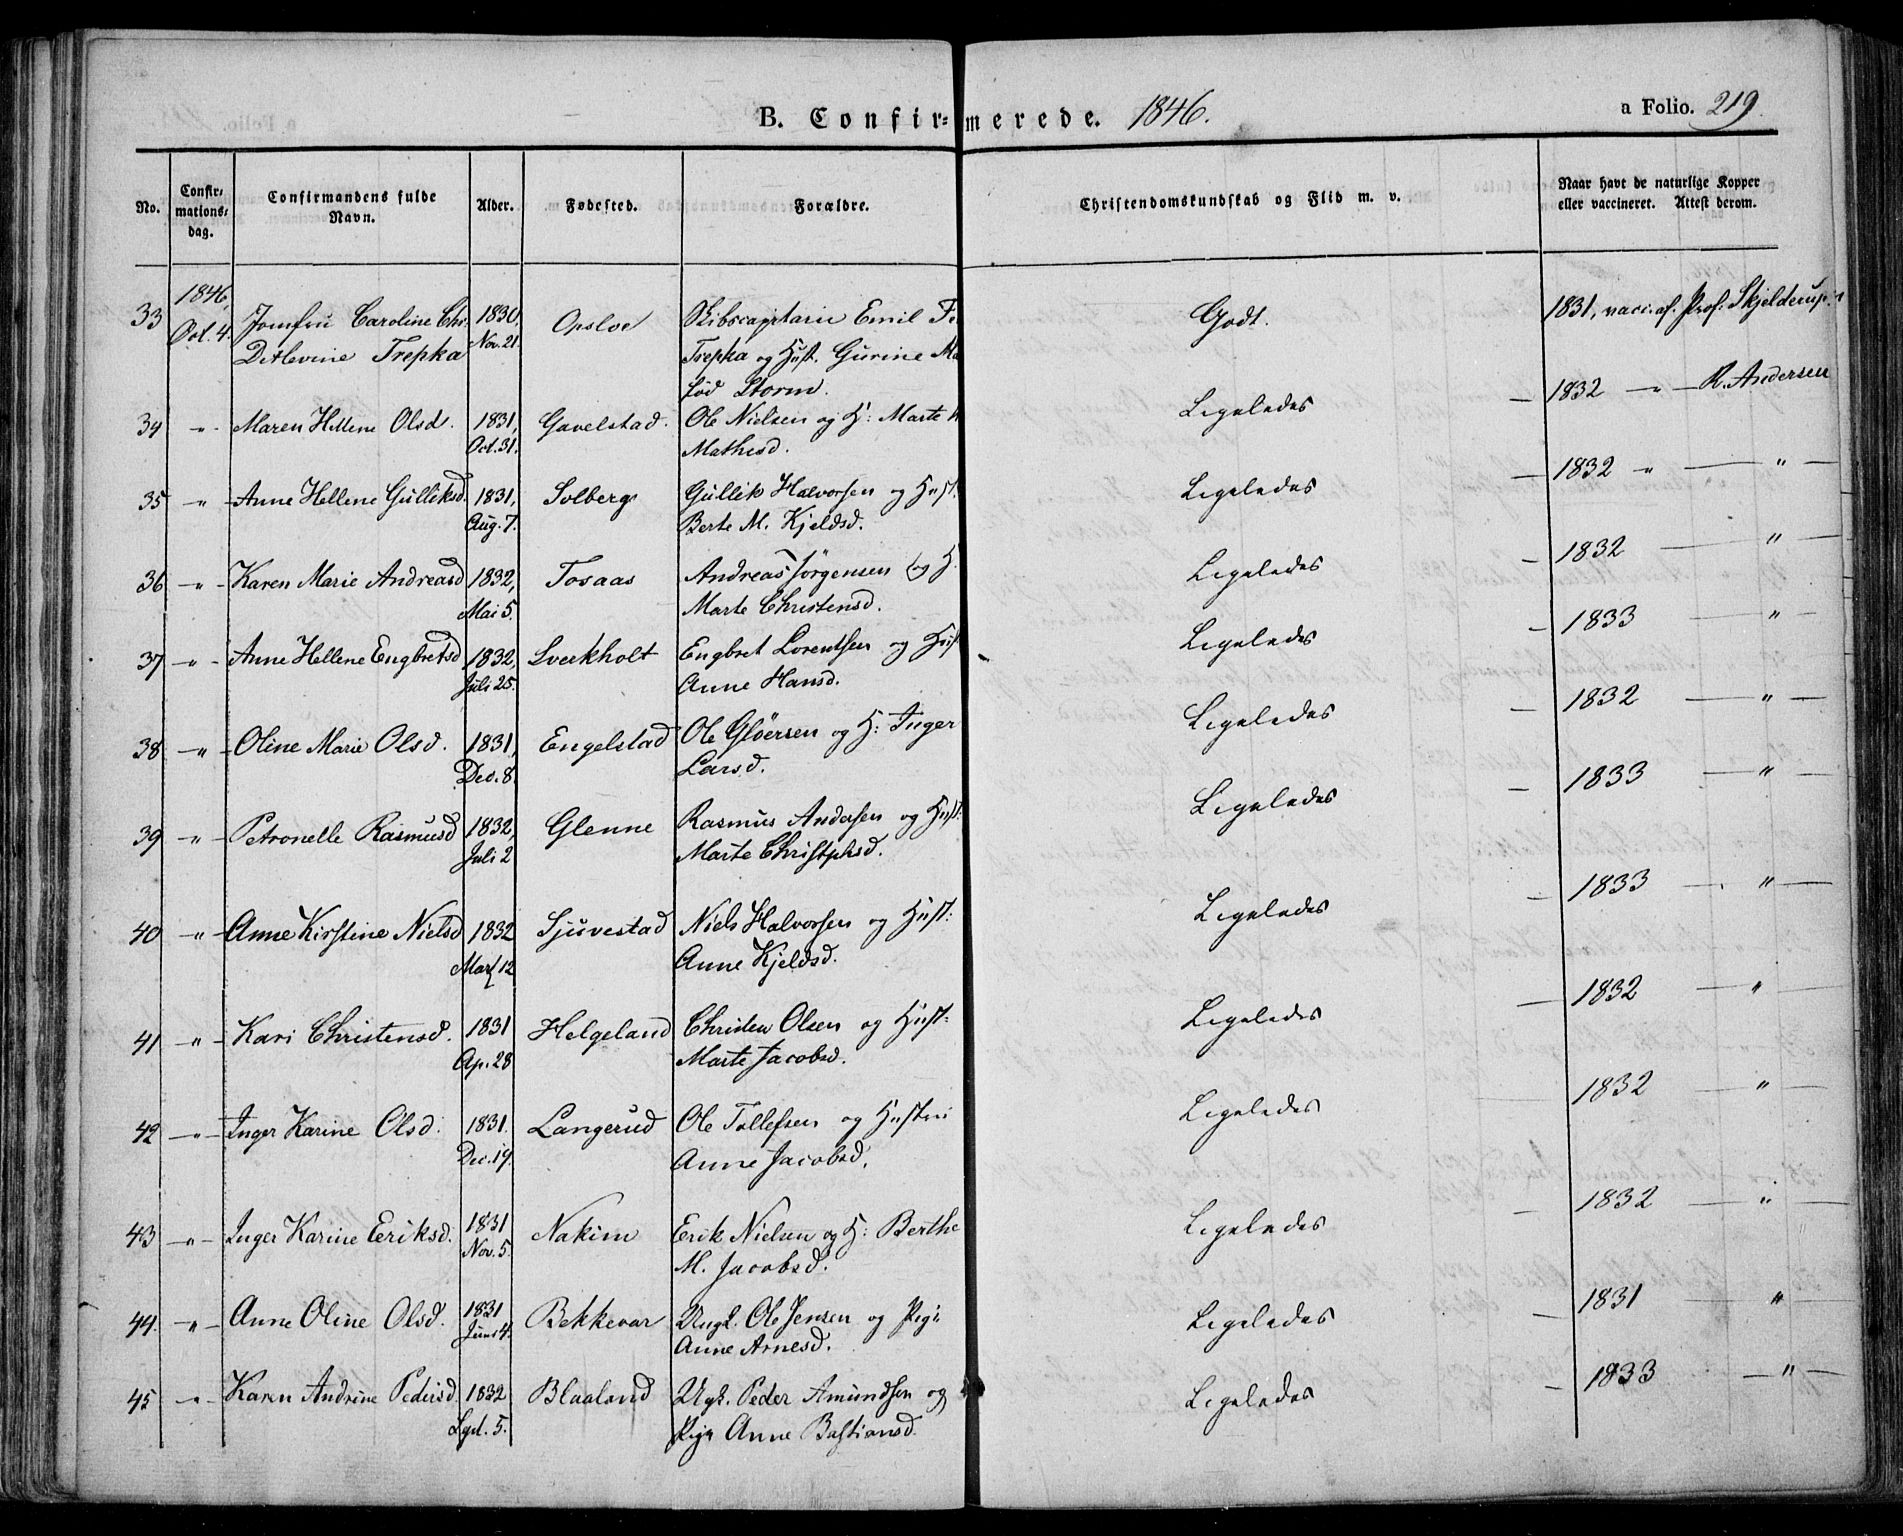 B. Confir= merede. 1846.
a Folio. 219
No.
Confir=
mations=
dag.
Confirmandens fulde
Navn.
Alder.
Fødested.
Forældre.
Christendomskundskab og Flid m. v.
Naar havt de naturlige Kopper
eller vaccineret. Attest derom.
33 1846, Oct. 4. Jomfru Caroline Chr. 1830, Nov. 21. Opsloe Emil Godt. 1831, vacc. af Prof. Skjelderup.
Ditlevine Trepka Trepka og Hust. Gurine
fød Storm.
34 " Maren Hellene Olsd. 1831, Gavelstad. Ole Nielsen og H: Marte Ligeledes — 1832 " — R. Andersen
Oct. 31. Mathisd.
35 " Anne Hellene Gulliksd. 1831, Solberg Gullik Halvorsen og Hust. Ligeledes — 1832 " — "
Aug. 7. Berte M. Kjeldsd.
36 " Karen Marie Andreasd 1832, Tosaas Andreas Jørgensen og H. Ligeledes — 1832 — "
Mai 5. Marte Christensd.
37 " Anne Hellene Engbretsd 1832, Sverkholt Engbret Lorentsen og Hust Ligeledes — 1833 "
Juli 25. Anne Hansd.
38 " Oline Marie Olsd. 1831, Engelstad Ole Gløersen og H: Inger Ligeledes — 1832 — "
Dec. 8. Larsd.
39 " Petronelle Rasmusd 1832, Glenne Rasmus Andersen og Hust: Ligeledes — 1833 — "
Juli 2 Marte Christphsd.
40 " Anne Kirstine Nielsd 1832 Sjuvestad Niels Halvorsen og Hust: Ligeledes — 1833 — "
Mart 12 Anne Kjeldsd.
41 " Kari Christensd. 1831 Helgeland Christen Olsen og Hust: Ligeledes — 1832 — "
Ap. 28 Marte Jacobsd.
42 " Inger Karine Olsd. 1831. Langerud Ole Tollefsen og Hustru Ligeledes — 1832 — "
Dec. 19. Anne Jacobsd.
43 " Inger Karine Eriksd. 1831 Nakim Erik Nielsen og H: Berthe Ligeledes — 1832 — "
Nov. 5. M. Jacobsd.
44. " Anne Oline Olsd. 1831 Bekkevar Ungk. Ole Jensen og Pige Ligeledes — 1831 — "
Juni 4. Anne Arnesd.
45 " Karen Andrine Pedersd. 1832 Blaaland Ugk. Peder Amundsen og Ligeledes — 1833 — "
5. Pige Anne Bastiansd.